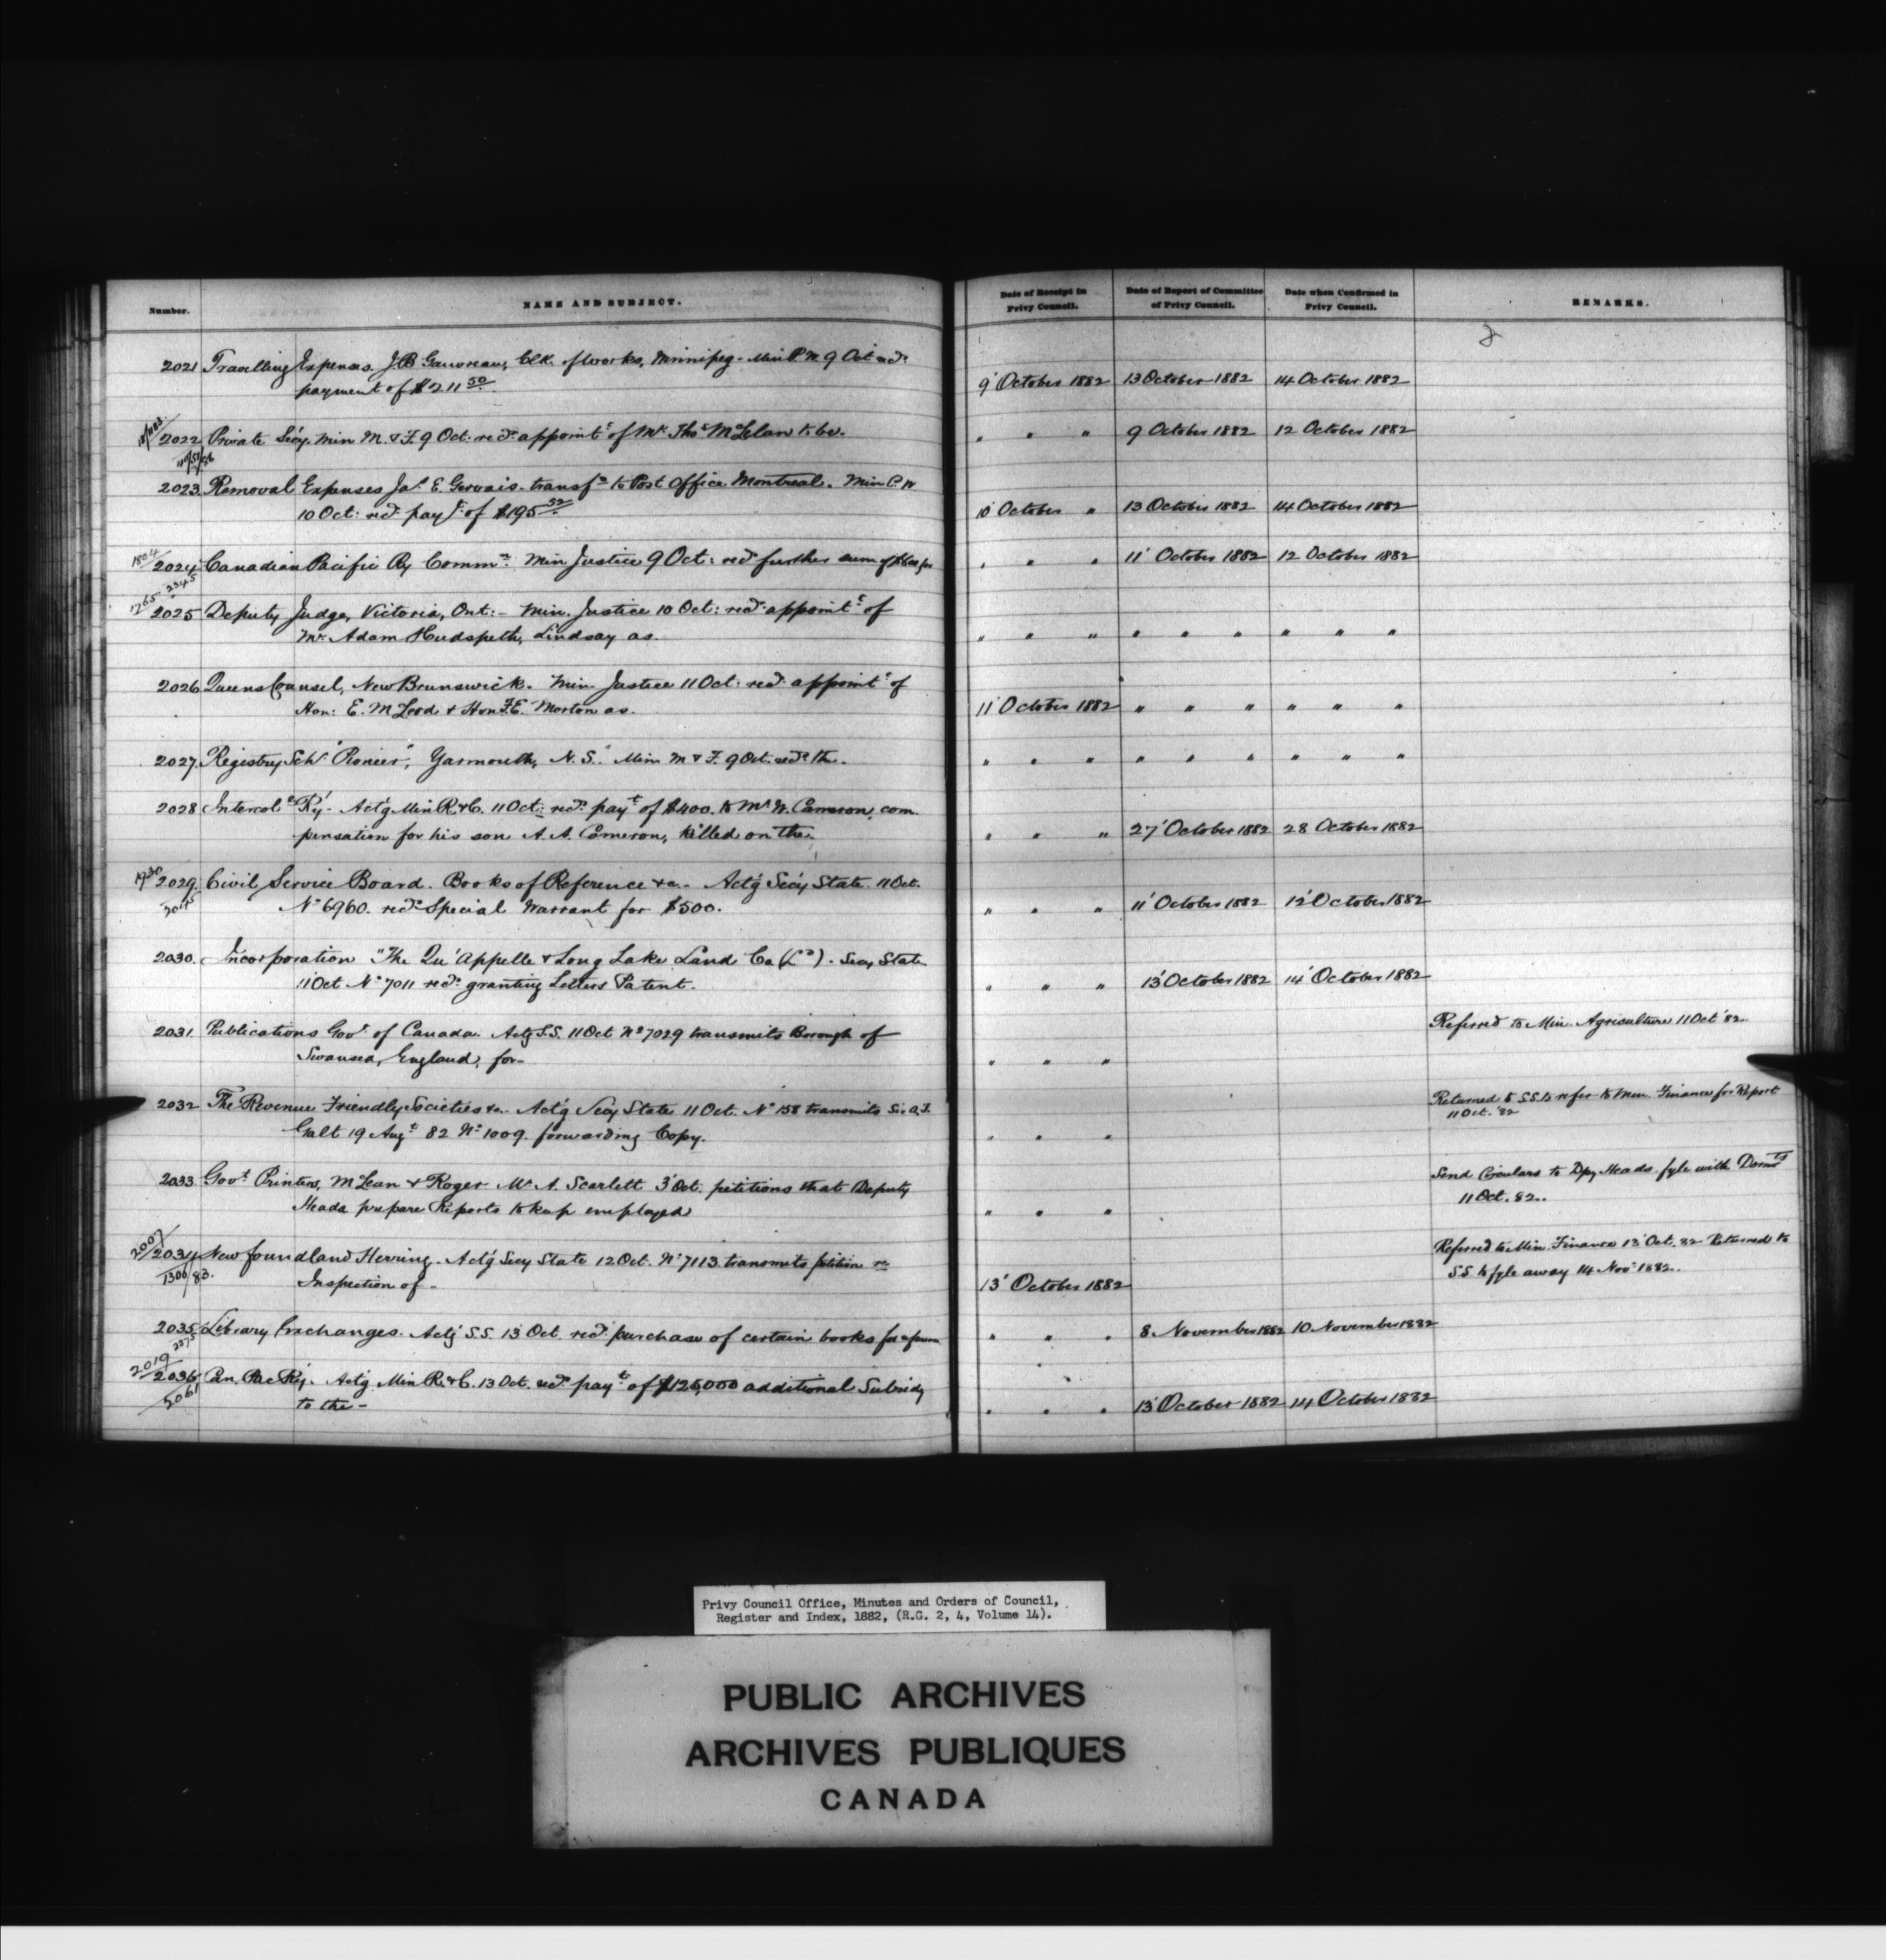 Number.
NAME AND SUBJECT.
Date of Receipt in Privy Council.
Date of Report of Committee of Privy Council.
Date when Confirmed in Privy Council.
REMARKS.
8
2021 Travelling Expenses. J.B. Gauvreau, Clk. of Works, Winnipeg - Min P.W. 9 Oct recd
payment of $211 50
9' October 1882 13 October 1882 14 October 1882
2022 Private Secy. Min M. & F. 9 Oct. recd. appointt of Mr Thos McLelan to be.
" " " 9 October 1882 12 October 1882
2023 Removal Expenses Jas. E. Gervais. transfd to Post Office Montreal. Min P.W
10 Oct: recd. payt. of $195
10 October " 13 October 1882 14 October 1882
1804
2024 Canadian Pacific Ry Commn. Min Justice 9 Oct: recd further sum of for
" " " 11' October 1882 12 October 1882
2345
1765
2025 Deputy Judge, Victoria, Ont: - Min. Justice 10 Oct: recd. appointt of
Mr. Adam Hudspeth, Lindsay as.
" " " " " " " " "
2026 Queens Counsel, New Brunswick. Min Justice 11 Oct: recd. appointt of
Hon: E. McLeod & Hon F.E. Morton as.
11' October 1882 " " " " " "
2027. Registry Schr "Pioneer", Yarmouth, N.S. Min M & F. 9 Oct. recd. the.
" " " " " " " " "
2028 Intercoll Ry - Act'g Min R. & C. 11 Oct: recd. payt of $400. to Mr W. Cameron, com
pensation for his son A. A. Cameron, killed on the.
" " " 27' October 1882 28 October 1882
1930
2029. Civil Service Board. Books of Reference &c. - Act'g Sec'y State. 11 Oct.
No 6960. recd. Special Warrant for $500.
" " " 11' October 1882 12' October 1882
2030. Incorporation "The Qu'Appelle & Long Lake Land Co (Ld). Secy State
11 Oct No 7011 recd. granting Letters Patent.
" " " 13' October 1882 14' October 1882
2031. Publications Govt. of Canada. Actg S.S. 11 Oct No 7029 transmits Borough of
Swansea, England, for -
" " "
Referred to Min. Agriculture 11 Oct '82.
2032 The Revenue Friendly Societies &c. Act'g Secy State 11 Oct. No 158 transmits Sir A.T.
Galt 19 Augt 82 No 1009. forwarding Copy.
" " "
Returned to S.S. to refer to Min. Finance for Report
11 Oct. '82
2033 Govt Printers, McLean & Roger Mr A. Scarlett 3 Oct. petitions that Deputy
Heads prepare Reports to keep employed
" " "
Send Circulars to Dpy Heads. fyle with
11 Oct. 82..
2007
2034 Newfoundland Herring. Act'g Secy State 12 Oct. No 7113. transmits petition re
1306/83.
Inspection of -
13' October 1882
Referred to Min. Finance 13 Oct. 82 Returned to
S.S. to fyle away 14 Novr 1882.
2035 Library Exchanges. Act'g S.S. 13 Oct. recd. purchase of certain books for
" " " 8 November 1882 10 November 1882
2019
2036 Can. Pac Ry. Act'g Min R. & C. 13 Oct. recd. payt of $125,000 additional Subsidy
2061
to the -
" " " 13' October 1882 14 October 1882
Privy Council Office, Minutes and Orders of Council,
Register and Index, 1882, (R.G. 2, 4, Volume 14).
PUBLIC ARCHIVES
ARCHIVES PUBLIQUES
CANADA